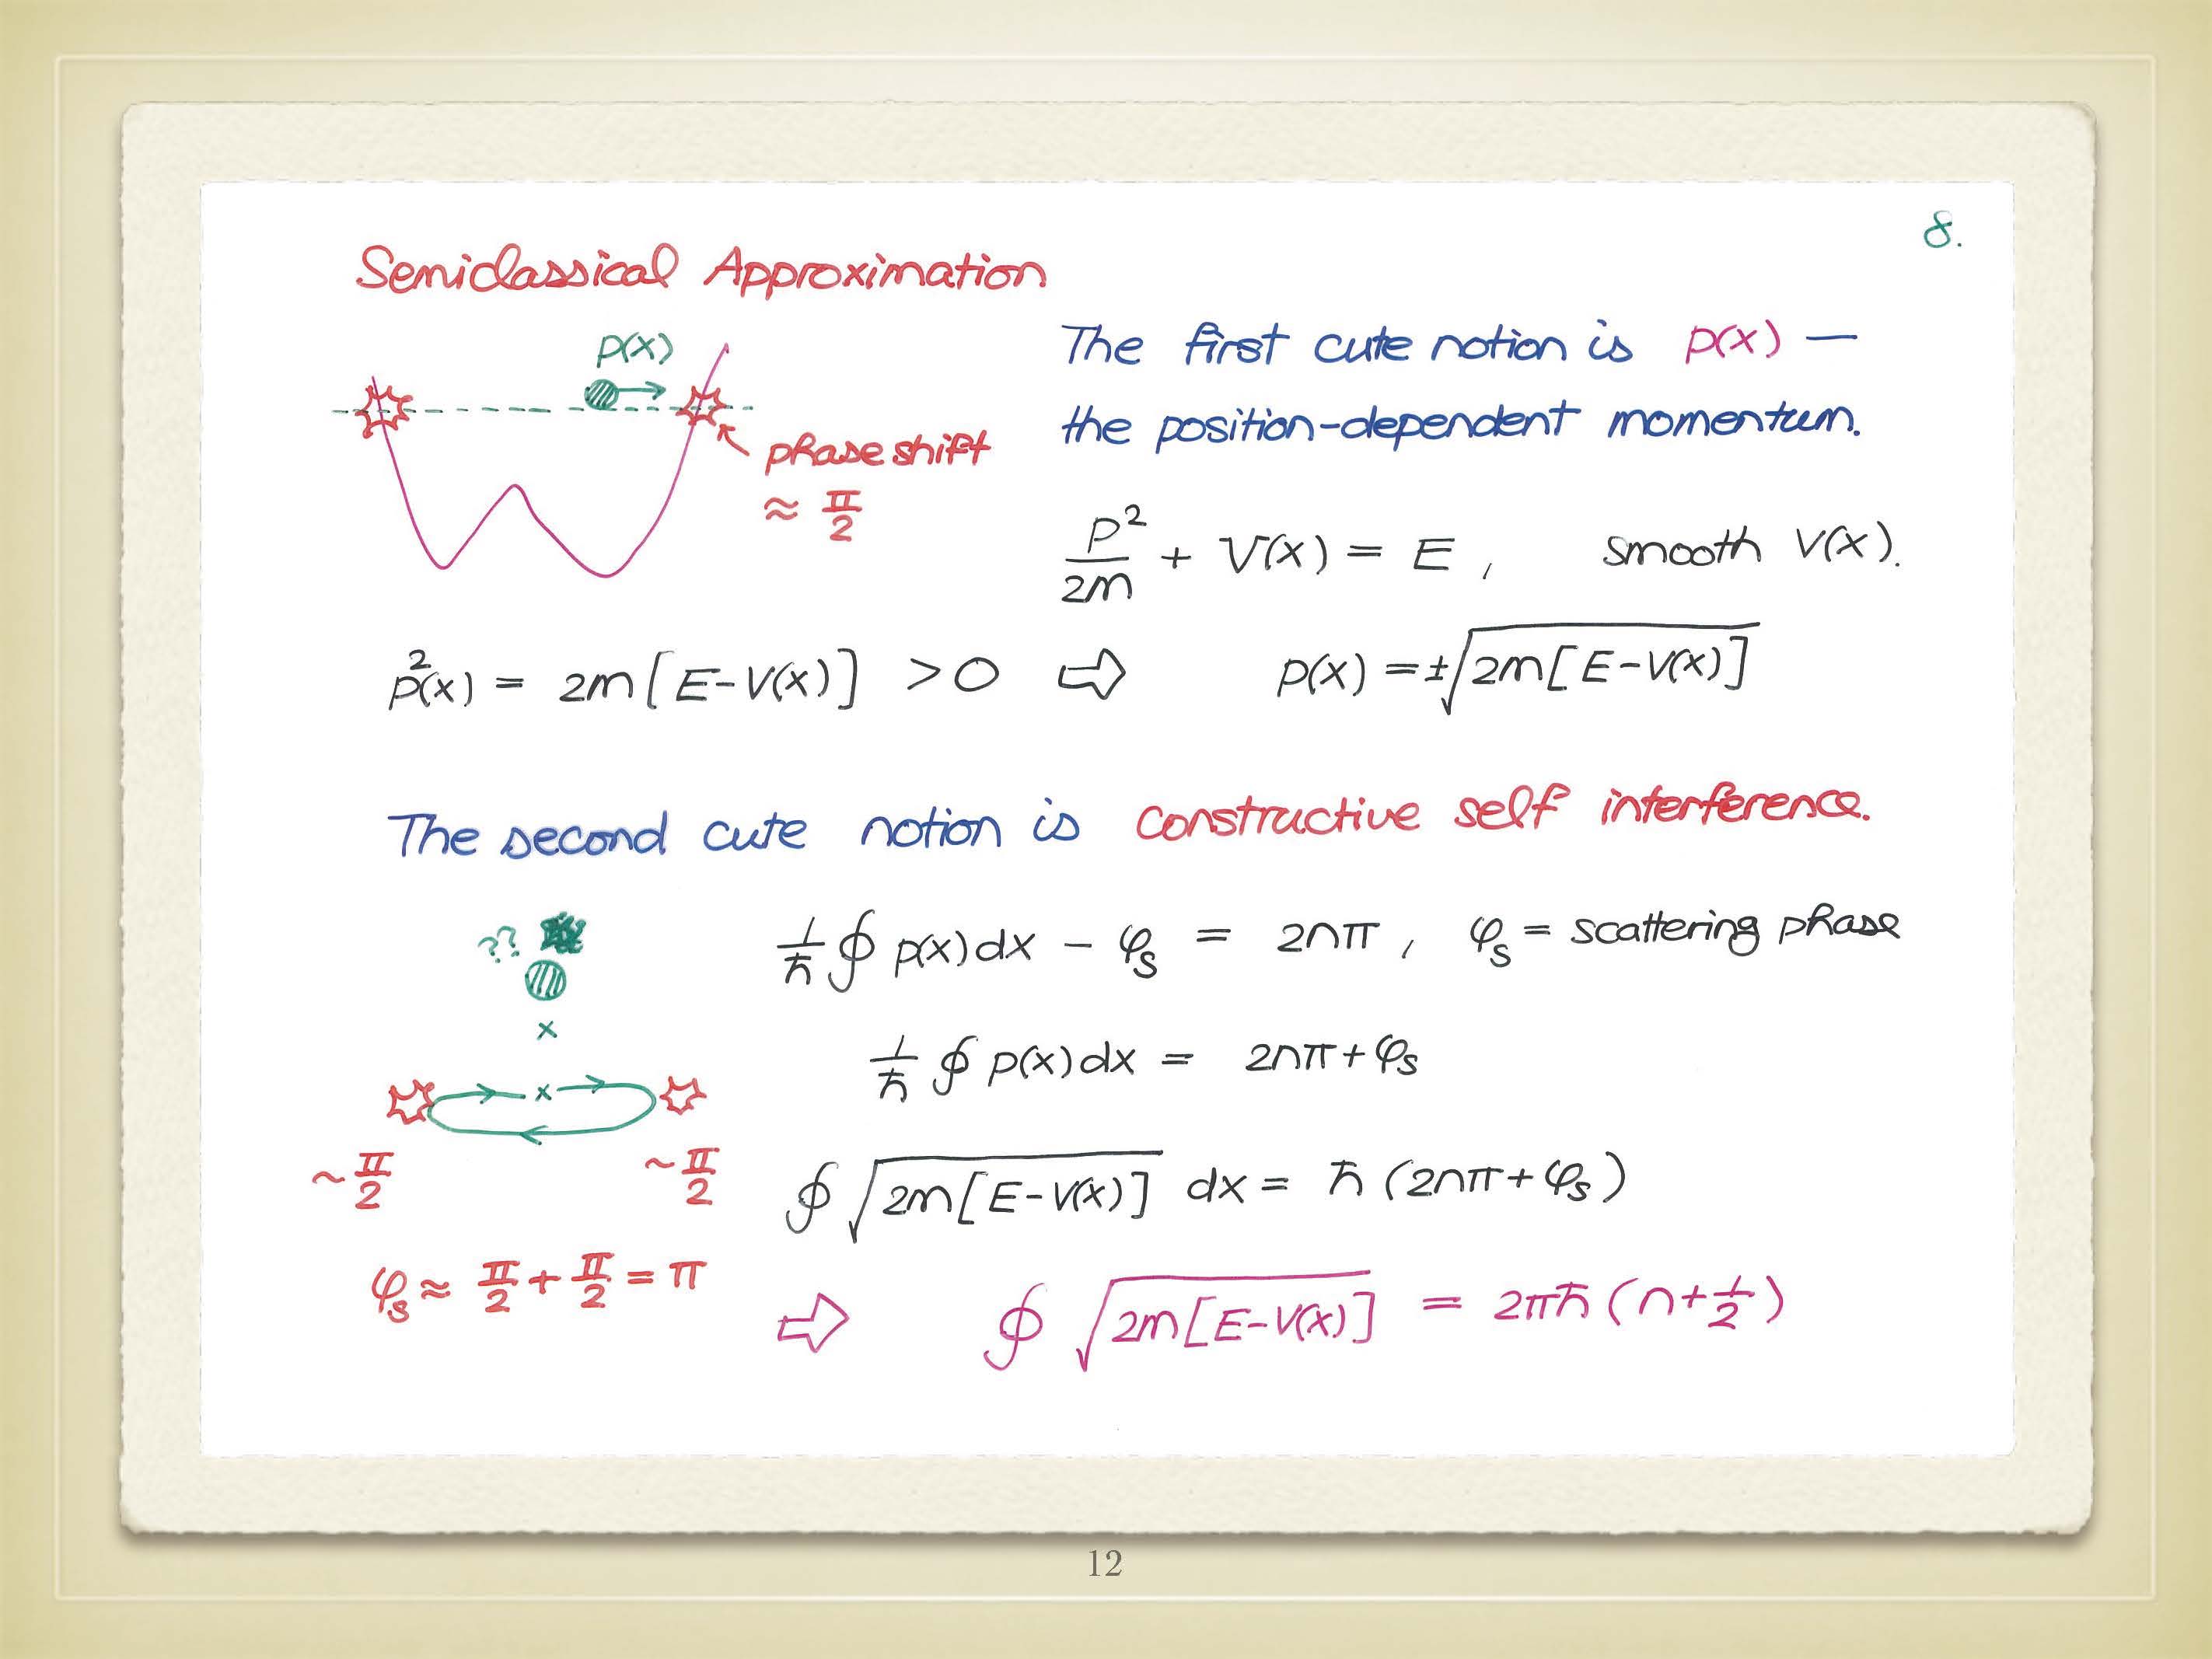 8.
Semiclassical Approximation
p(x)
phase shift
≈ π/2
The first cute notion is p(x) —
the position-dependent momentum.
p²/2m + V(x) = E , smooth V(x).
p²(x) = 2m[E-V(x)] >0 ⇨ p(x) = ±√2m[E-V(x)]
The second cute notion is constructive self interference.
??
x
x
~ π/2 ~ π/2
φs ≈ π/2 + π/2 = π
1/ħ ∮ p(x)dx - φs = 2nπ , φs = scattering phase
1/ħ ∮ p(x)dx = 2nπ + φs
∮ √2m[E-V(x)] dx = ħ (2nπ + φs)
⇨ ∮ √2m[E-V(x)] = 2πħ (n+1/2)
12